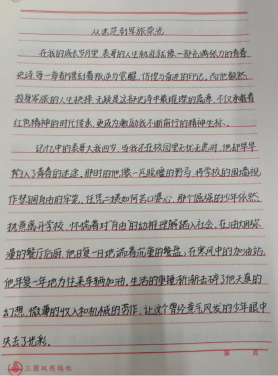 从迷茫到军旅荣光
在我的成长岁月里，表哥的人生轨迹就像一部充满张力的青春
史诗，每一章都镌刻着叛逆与觉醒、彷徨与奋进的印记。而他毅然
投身军旅的人生抉择，无疑是这部史诗中最璀璨的篇章，不仅承载着
红色精神的时代传承，更成为激励我不断前行的精神坐标。
记忆中的表哥大我四岁，当我还在校园里无忧无虑时，他却早早
陷入了青春的迷途。那时的他像一匹脱缰的野马，将学校的围墙视
作禁锢自由的牢笼，任凭二姨如何苦口婆心，那个倔强的少年依然
执意离开学校，怀揣着对自由的幼稚理解踏入社会。在油烟弥
漫的餐厅后厨，他日复一日地端着沉重的餐盘；在寒风中的加油站，
他年复一年地为往来车辆加油。生活的重锤渐渐击碎了他天真的
幻想，微薄的收入和机械的劳作，让这个曾经意气风发的少年眼中
失去了光彩。
三盟双线稿纸
第 页